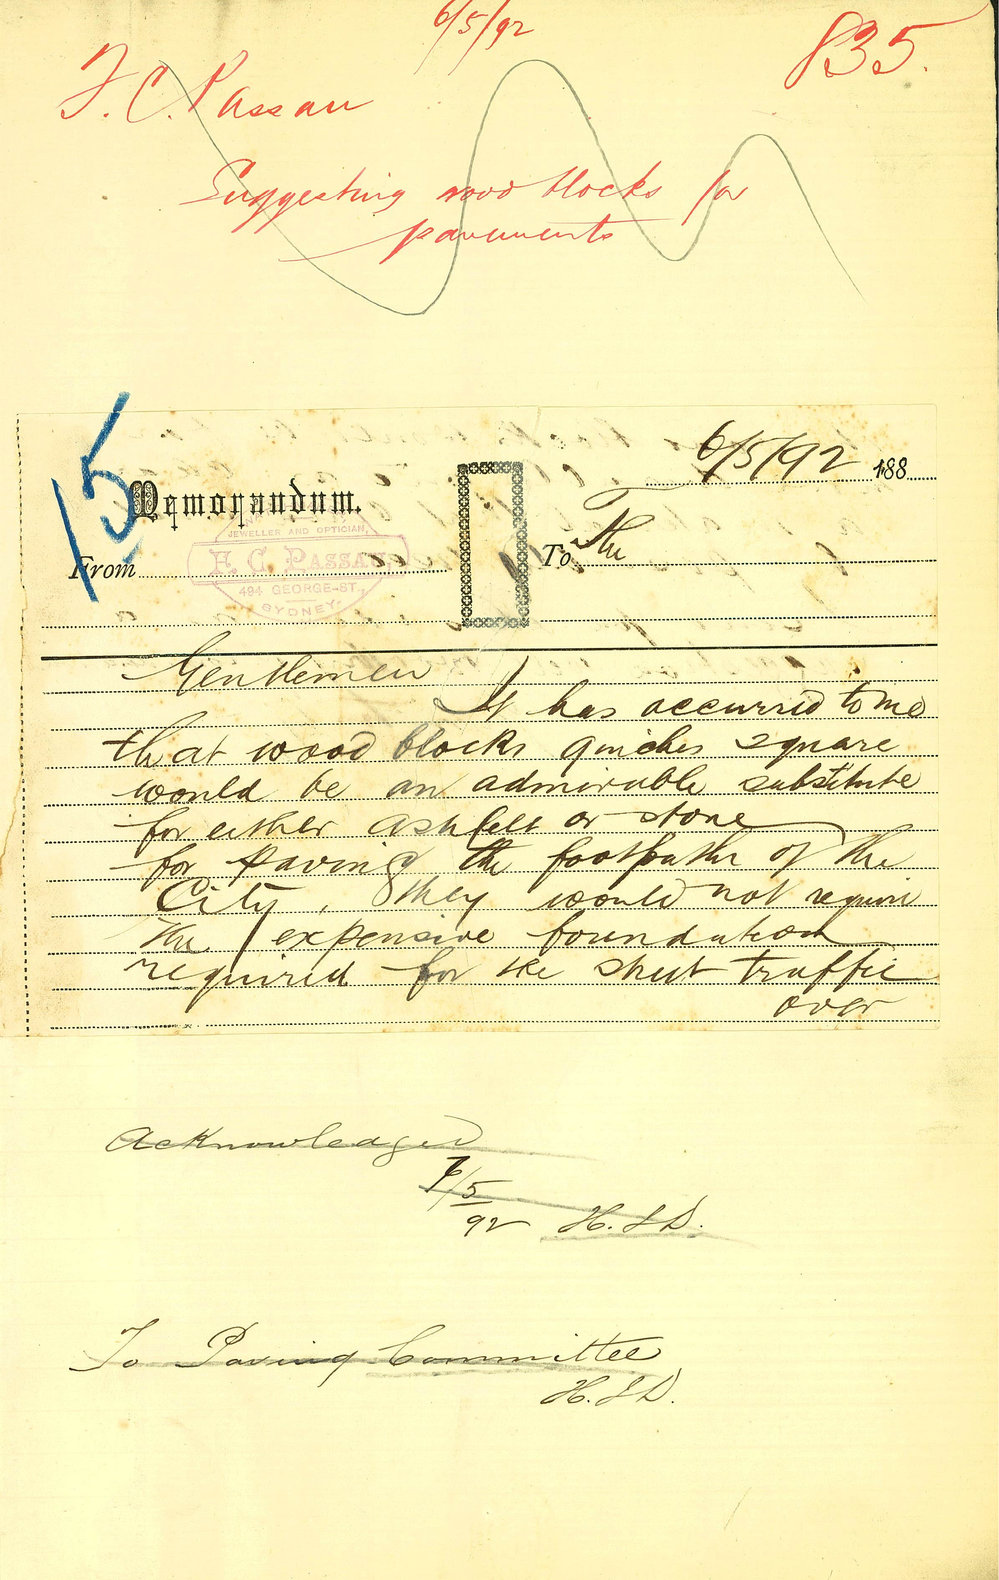 6/5/92
835.
F. C. Passau
Suggesting wood blocks for
pavements
15
6/5/92 188
Memorandum.
JEWELLER AND OPTICIAN,
H. C. PASSAU
494 GEORGE-ST.,
SYDNEY.
From
To The
Gentlemen
It has occurred to me
that wood blocks 9 inches square
would be an admirable substitute
for either ashfelt or stone
for Paving the footpaths of the
City, they would not require
the expensive foundation
required for the street traffic
over
Acknowledged
7/5
92 H.S.D.
To Paving Committee
H.S.D.